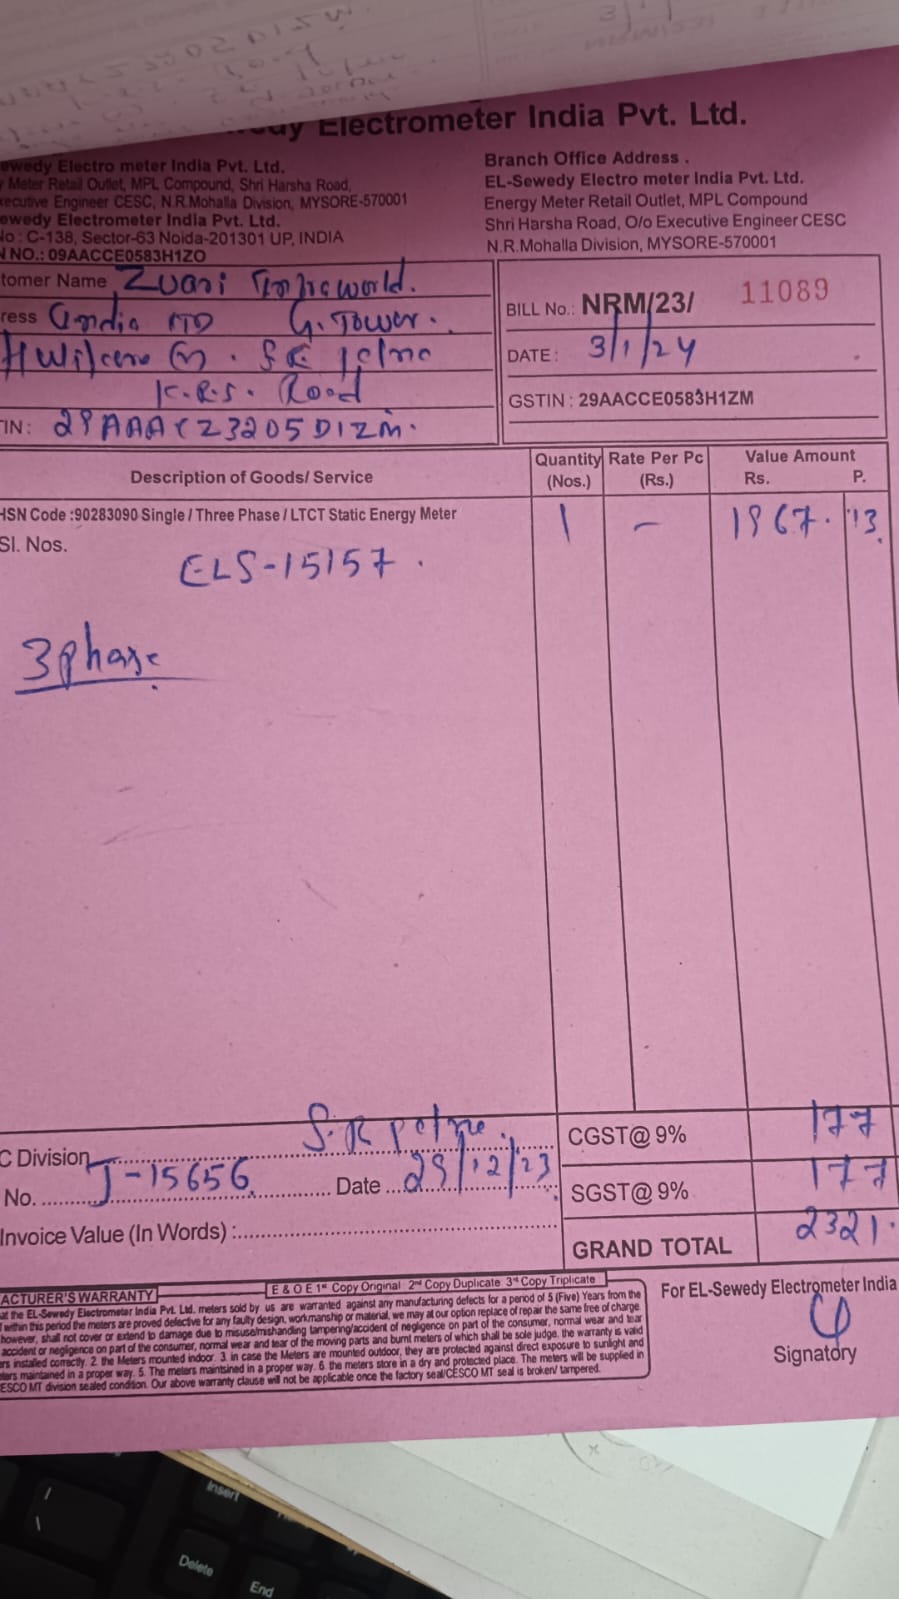 Electrometer India Pvt. Ltd.
ewedy Electro meter India Pvt. Ltd.
Meter Retail Outlet, MPL Compound, Shri Harsha Road,
ecutive Engineer CESC, N.R.Mohalla Division, MYSORE-570001
ewedy Electrometer India Pvt. Ltd.
No : C-138, Sector-63 Noida-201301 UP, INDIA
N NO.: 09AACCE0583H1ZO
Branch Office Address .
EL-Sewedy Electro meter India Pvt. Ltd.
Energy Meter Retail Outlet, MPL Compound
Shri Harsha Road, O/o Executive Engineer CESC
N.R.Mohalla Division, MYSORE-570001
tomer Name Zuari Infraworld.
ress India G. Tower.
K.R.S. Road
IN:
BILL No.: NRM/23/ 11089
DATE : 3/1/24
GSTIN : 29AACCE0583H1ZM
Description of Goods/ Service
Quantity (Nos.)
Rate Per Pc (Rs.)
Value Amount
Rs. P.
HSN Code :90283090 Single / Three Phase / LTCT Static Energy Meter 1 - 1967. 13
Sl. Nos.
ELS-15157.
3 phase
C Division
No. J-15656 Date 29/12/23
Invoice Value (In Words) :
CGST@ 9% 177
SGST@ 9% 177
GRAND TOTAL 2321.
ACTURER'S WARRANTY
E & O E 1st Copy Original 2nd Copy Duplicate 3rd Copy Triplicate
at the EL-Sewedy Electrometer India Pvt. Ltd. meters sold by us are warranted against any manufacturing defects for a period of 5 (Five) Years from the
within this period the meters are proved defective for any faulty design, workmanship or material, we may at our option replace of repair the same free of charge.
however, shall not cover or extend to damage due to misuse/mishandling tampering/accident of negligence on part of the consumer, normal wear and tear
accident or negligence on part of the consumer, normal wear and tear of the moving parts and burnt meters of which shall be sole judge. the warranty is valid
ers installed correctly. 2. the Meters mounted indoor. 3. in case the Meters are mounted outdoor, they are protected against direct exposure to sunlight and
ters maintained in a proper way. 5. The meters maintsined in a proper way. 6. the meters store in a dry and protected place. The meters will be supplied in
ESCO MT division sealed condition. Our above warranty clause will not be applicable once the factory seal/CESCO MT seal is broken/ tampered.
For EL-Sewedy Electrometer India
Signatory
Insert
Delete
End